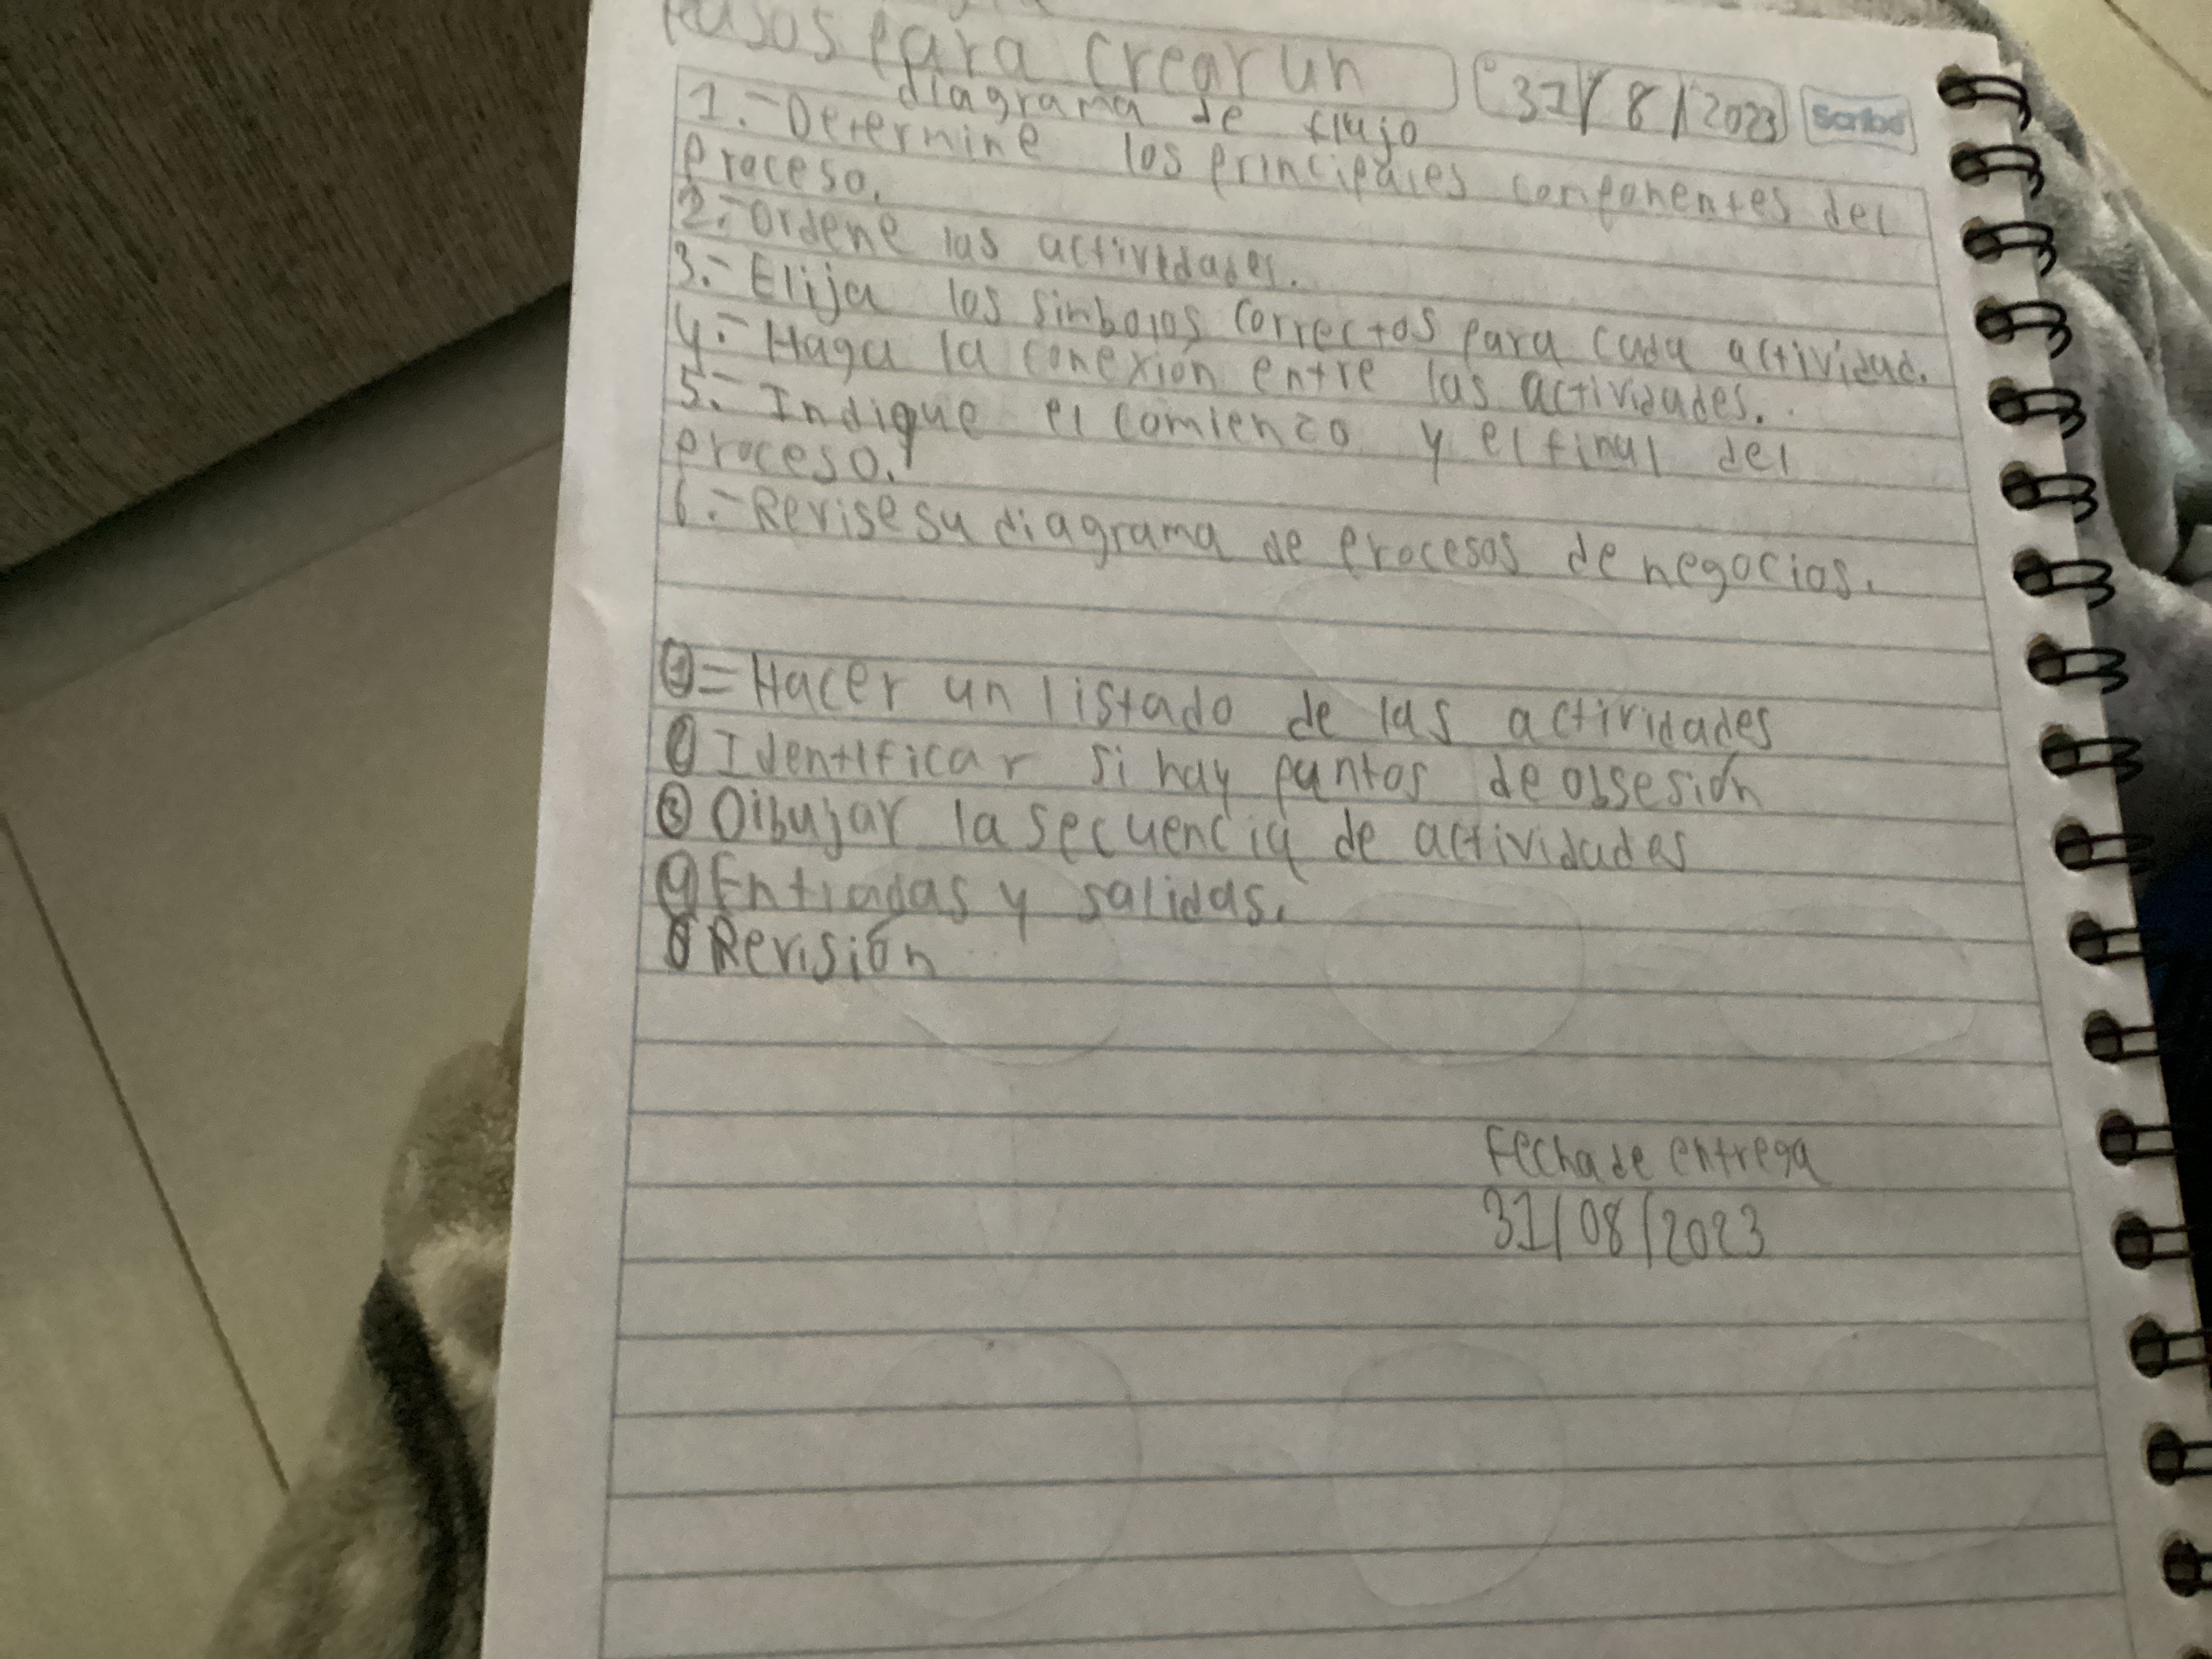 Pasos para crear un
diagrama de flujo
31/8/2023
Scribe
1.- Determine los principales componentes del
proceso.
2.- Ordene las actividades.
3.- Elija los simbolos correctos para cada actividad.
4.- Haga la conexión entre las actividades.
5.- Indique el comienzo y el final del
proceso.
6.- Revise su diagrama de procesos de negocios.
1= Hacer un listado de las actividades
Identificar si hay puntos de obsesión
3 Dibujar la secuencia de actividades
4 Entradas y salidas.
Revisión
Fecha de entrega
31/08/2023